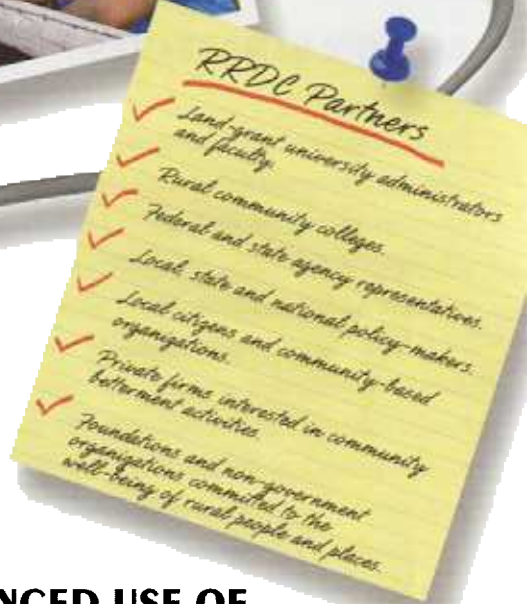 RRDC Partners
Land-grant university administrators
and faculty.
Rural community colleges.
Federal and state agency representatives.
Local, state and national policy-makers.
Local citizens and community-based
organizations.
Private firms interested in community
betterment activities.
Foundations and non-government
organizations committed to the
well-being of rural people and places.
NCED USE OF